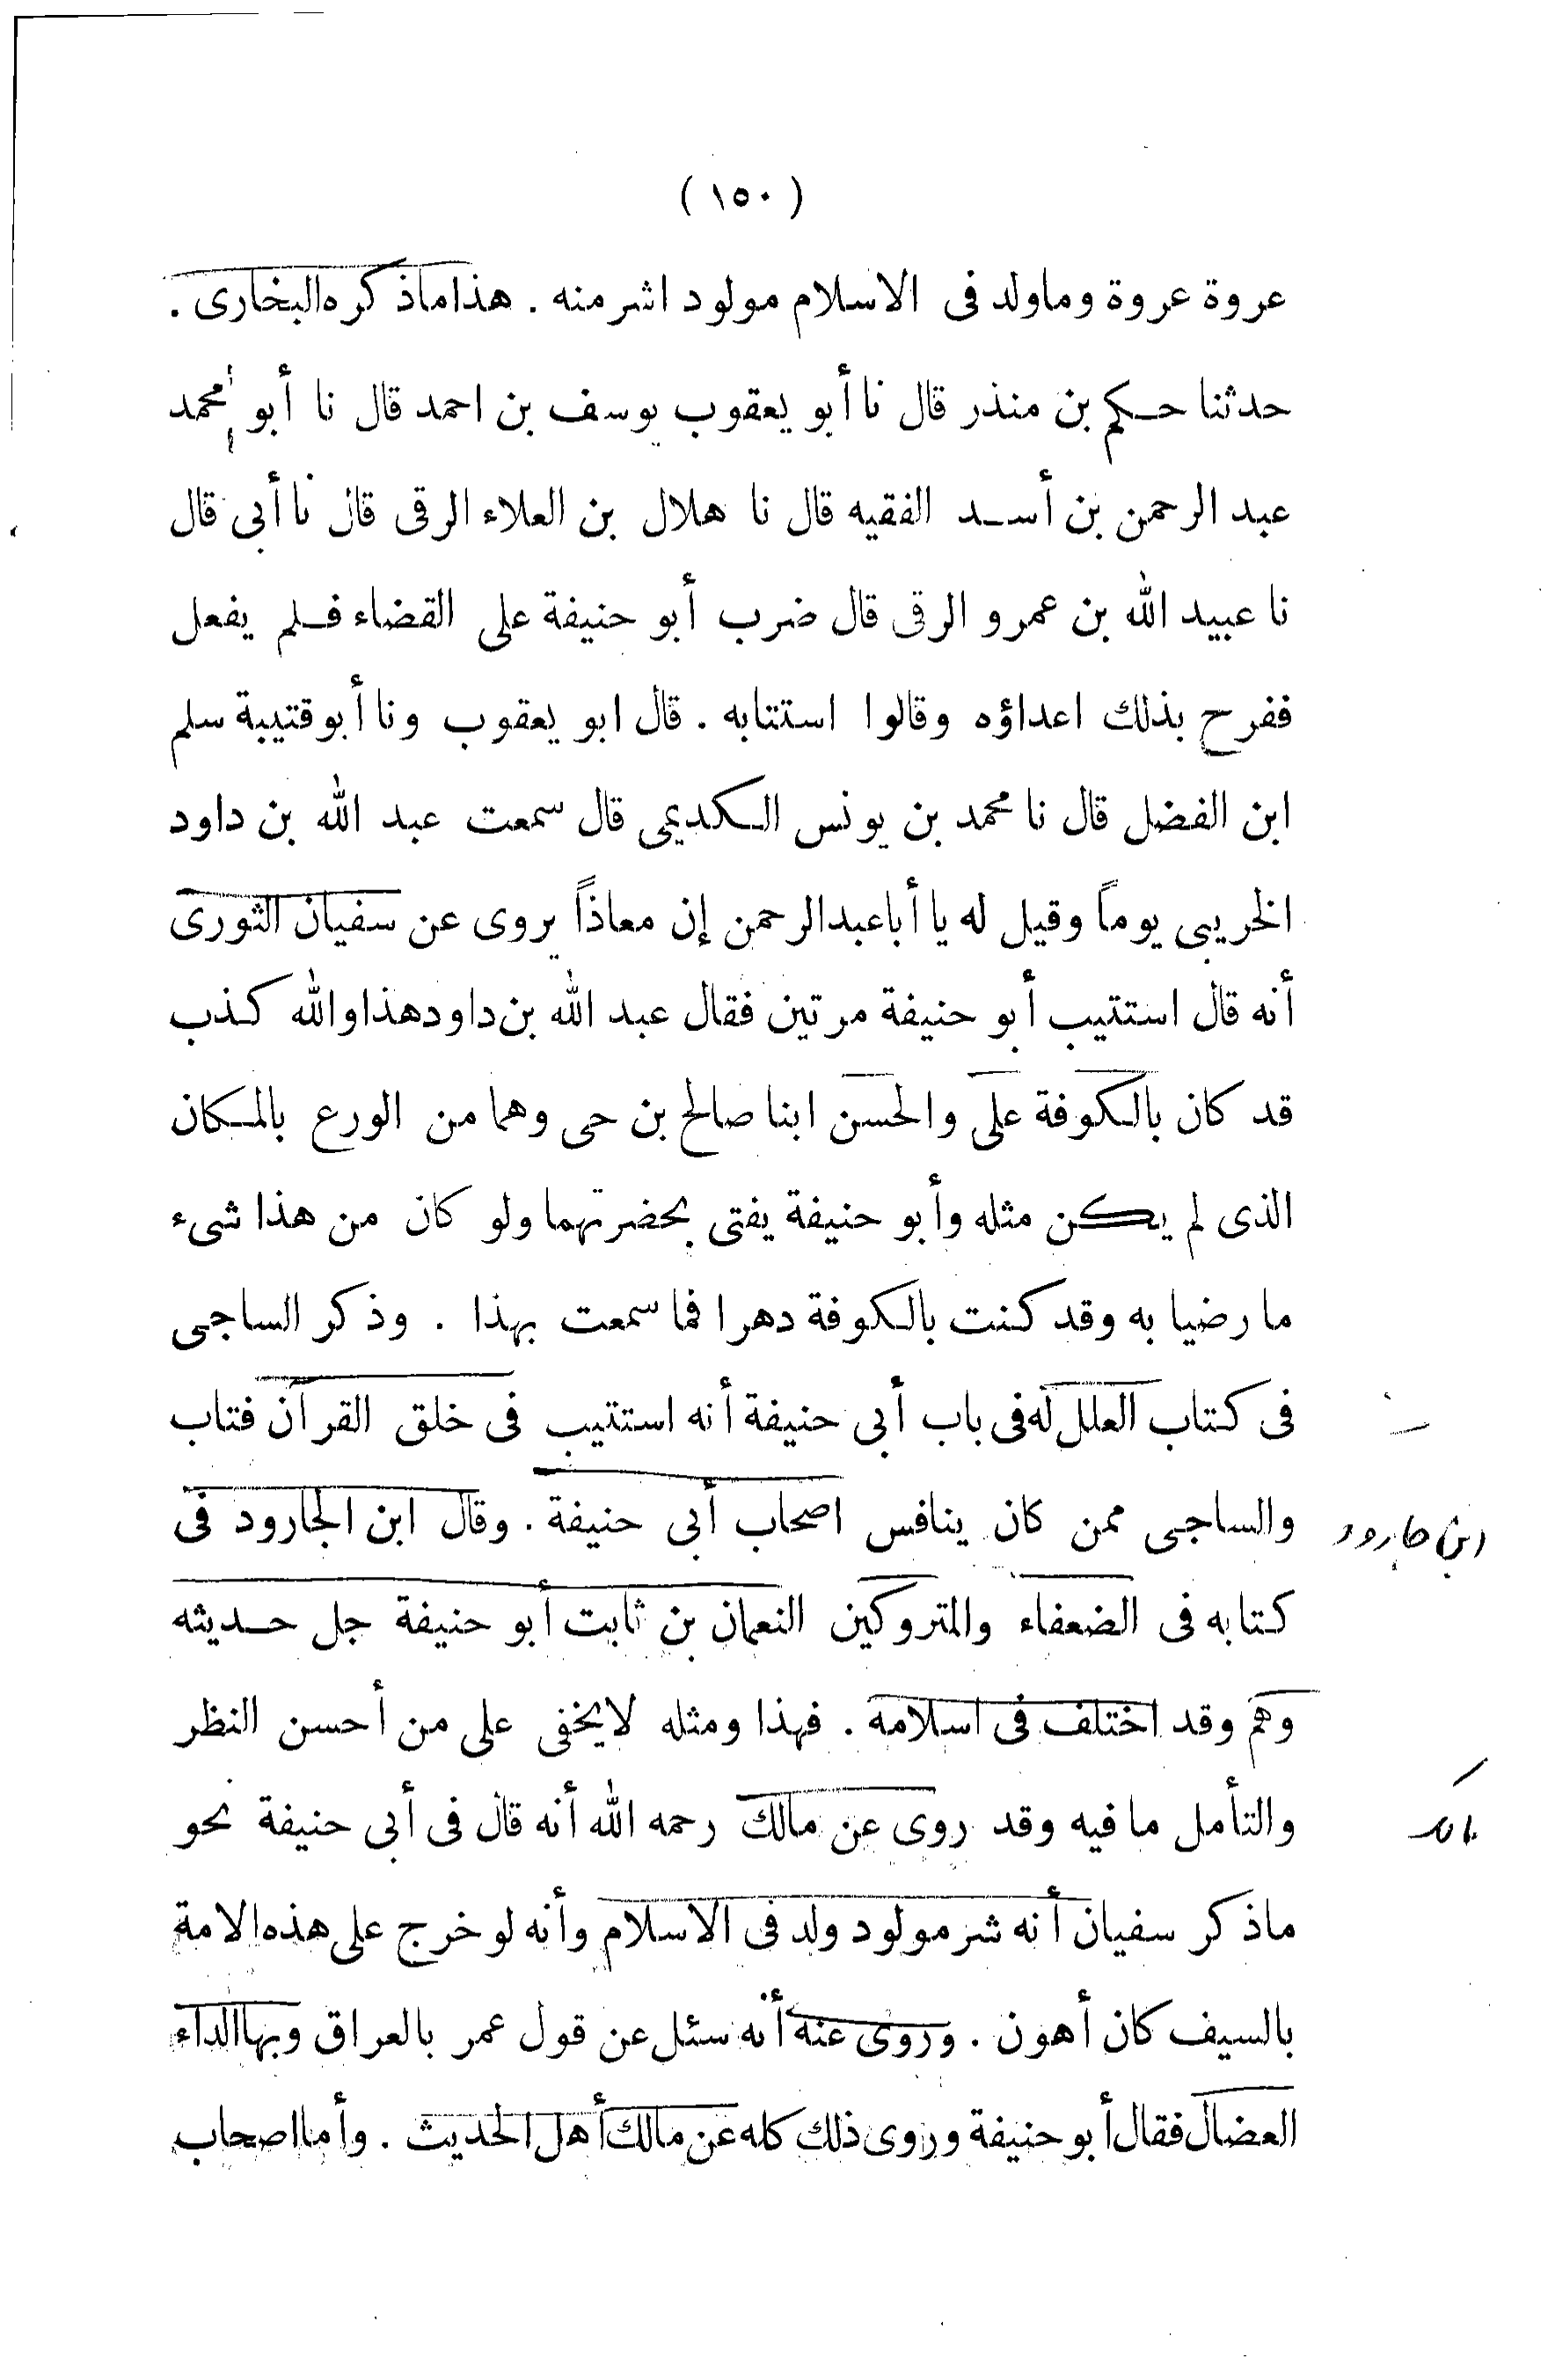 ( ١٥٠ )
عروة عروة وماولد فى الاسلام مولود اشر منه . هذا ماذكره البخارى .
حدثنا حكم بن منذر قال نا أبو يعقوب يوسف بن احمد قال نا أبو محمد
عبد الرحمن بن أسد الفقيه قال نا هلال بن العلاء الرقى قال نا أبى قال
نا عبيد الله بن عمرو الرقى قال ضرب أبو حنيفة على القضاء فلم يفعل
ففرح بذلك اعداؤه وقالوا استتابه . قال ابو يعقوب ونا أبو قتيبة سلم
ابن الفضل قال نا محمد بن يونس الكديمى قال سمعت عبد الله بن داود
الخريبى يوماً وقيل له يا أبا عبد الرحمن إن معاذاً يروى عن سفيان الثورى
أنه قال استتيب أبو حنيفة مرتين فقال عبد الله بن داود هذا والله كذب
قد كان بالكوفة على والحسن ابنا صالح بن حى وهما من الورع بالمكان
الذى لم يكن مثله وأبو حنيفة يفتى بحضرتهما ولو كان من هذا شىء
ما رضيا به وقد كنت بالكوفة دهرا فما سمعت بهذا . وذكر الساجى
فى كتاب العلل له فى باب أبى حنيفة أنه استتيب فى خلق القرآن فتاب
والساجى ممن كان ينافس اصحاب أبى حنيفة . وقال ابن الجارود فى
ابن جارود
كتابه فى الضعفاء والمتروكين النعمان بن ثابت أبو حنيفة جل حديثه
وهم وقد اختلف فى اسلامه . فهذا ومثله لايخفى على من أحسن النظر
والتأمل ما فيه وقد روى عن مالك رحمه الله أنه قال فى أبى حنيفة نحو
ماذكر سفيان أنه شر مولود ولد فى الاسلام وأنه لو خرج على هذه الامة
بالسيف كان أهون . وروى عنه أنه سئل عن قول عمر بالعراق وبها الداء
العضال فقال أبو حنيفة وروى ذلك كله عن مالك أهل الحديث . وأما اصحاب